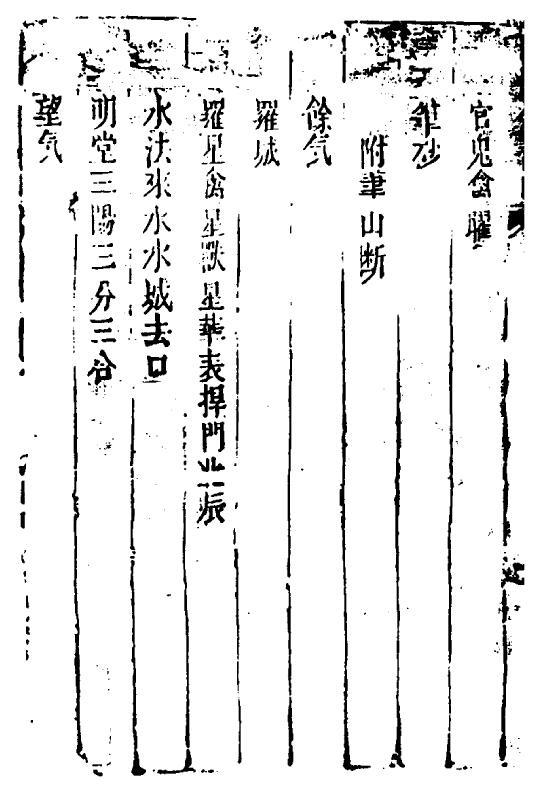 官鬼禽曜
雜砂
附筆山断
餘気
羅城
羅星禽星獸星華表捍門北辰
水法來水水城去口
明堂三陽三分三合
望気